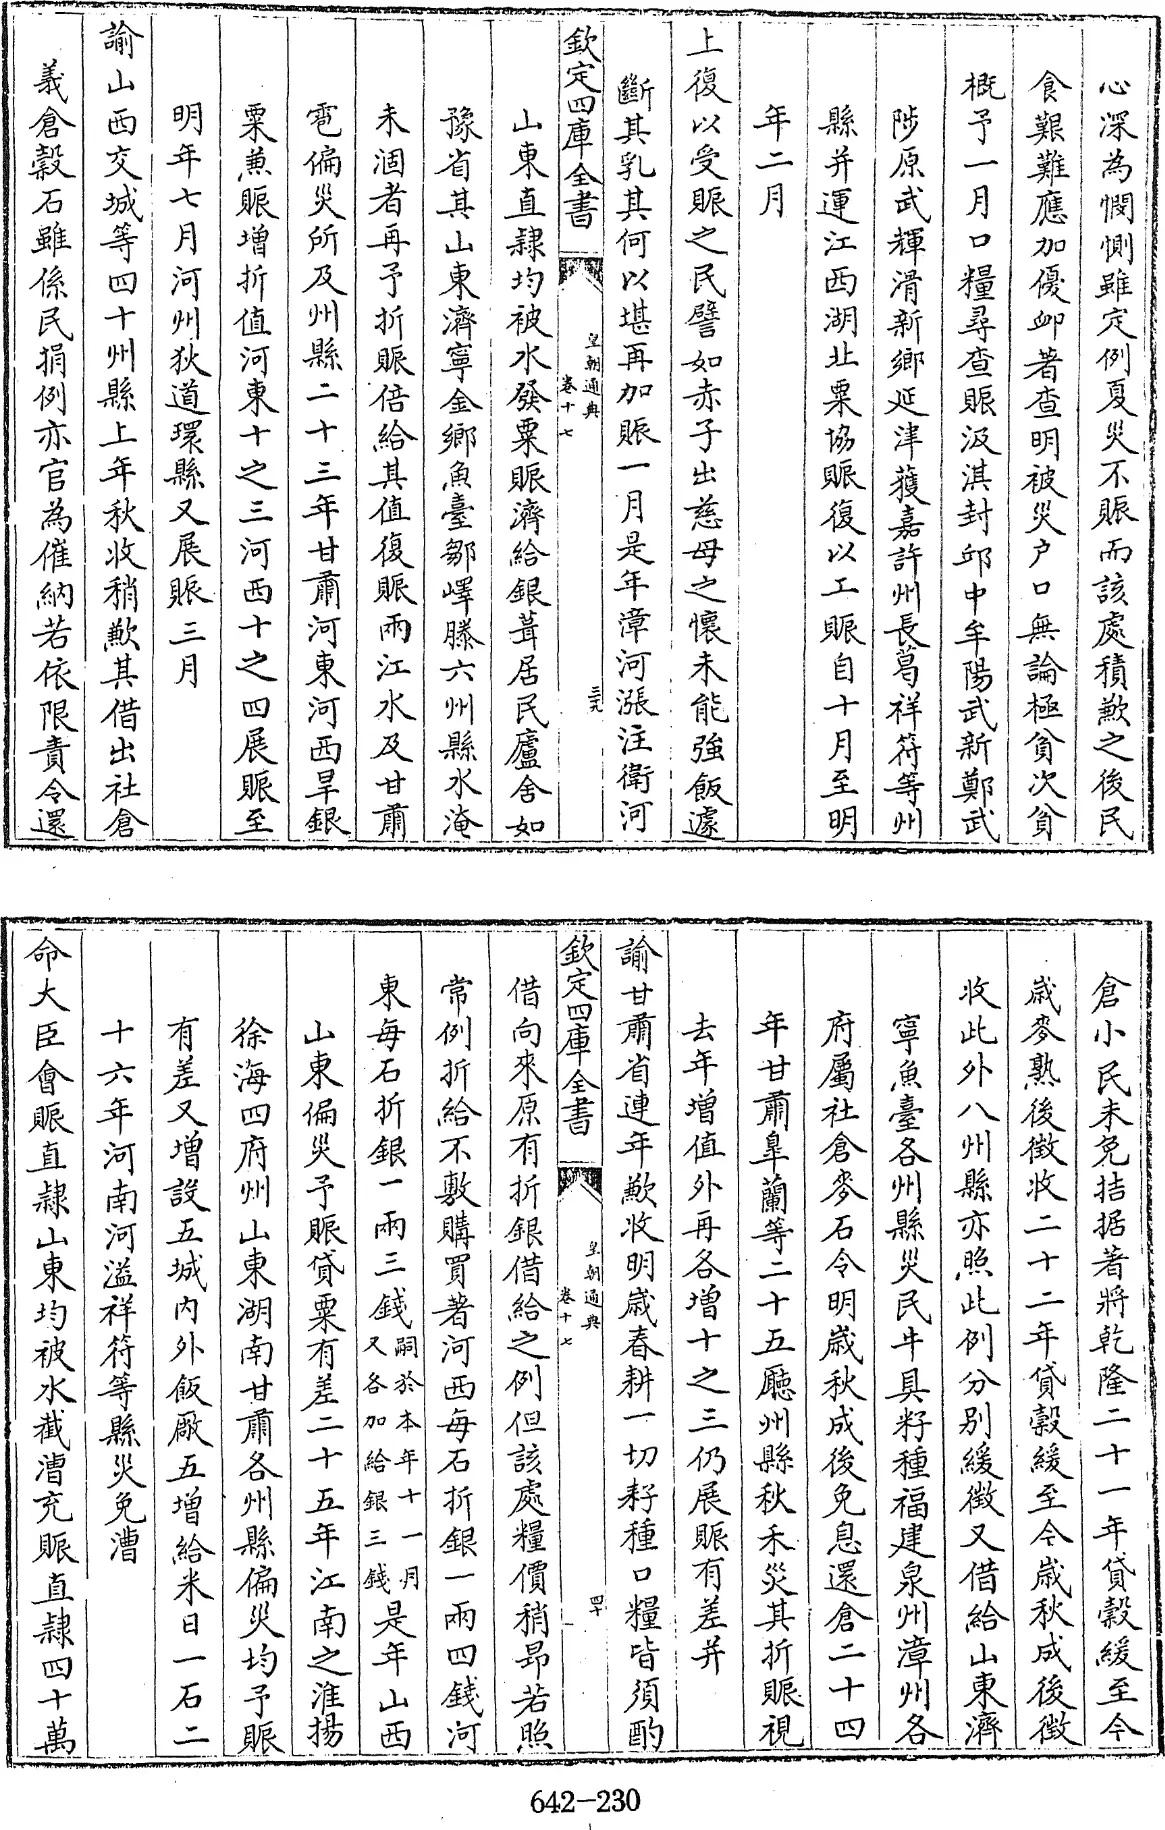 心深為憫惻雖定例夏災不賑而該處積歉之後民
食艱難應加優卹著查明被災户口無論極貧次貧
概予一月口糧尋查賑汲淇封邱中牟陽武新鄭武
陟原武輝滑新鄉延津獲嘉許州長葛祥符等州
縣并運江西湖北粟協賑復以工賑自十月至明
年二月
上復以受賑之民譬如赤子出慈母之懷未能強飯遽
斷其乳其何以堪再加賑一月是年漳河漲注衛河
欽定四庫全書
皇朝通典
卷十七
三九
山東直隸均被水發粟賑濟給銀葺居民廬舍如
豫省其山東濟寧金鄉魚臺鄒嶧滕六州縣水淹
未涸者再予折賑倍給其值復賑兩江水及甘肅
雹偏災所及州縣二十三年甘肅河東河西旱銀
粟兼賑增折值河東十之三河西十之四展賑至
明年七月河州狄道環縣又展賑三月
諭山西交城等四十州縣上年秋收稍歉其借出社倉
義倉穀石雖係民捐例亦官為催納若依限責令還
倉小民未免拮据著將乾隆二十一年貸穀緩至今
歲麥熟後徵收二十二年貸穀緩至今歲秋成後徵
收此外八州縣亦照此例分別緩徵又借給山東濟
寧魚臺各州縣災民牛具籽種福建泉州漳州各
府屬社倉麥石令明歲秋成後免息還倉二十四
年甘肅臯蘭等二十五廳州縣秋禾災其折賑視
去年增值外再各增十之三仍展賑有差并
諭甘肅省連年歉收明歲春耕一切籽種口糧皆須酌
欽定四庫全書
皇朝通典
卷十七
四十
借向來原有折銀借給之例但該處糧價稍昂若照
常例折給不敷購買著河西每石折銀一兩四錢河
東每石折銀一兩三錢嗣於本年十一月又各加給銀三錢是年山西
山東偏災予賑貸粟有差二十五年江南之淮揚
徐海四府州山東湖南甘肅各州縣偏災均予賑
有差又增設五城内外飯廠五增給米日一石二
十六年河南河溢祥符等縣災免漕
命大臣會賑直隸山東均被水截漕充賑直隸四十萬
642-230